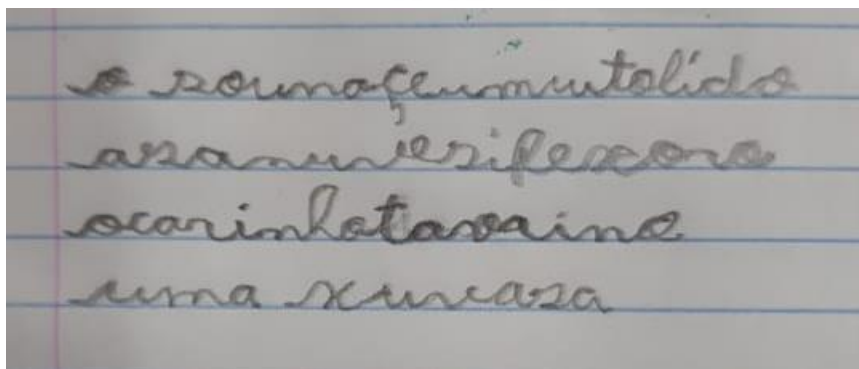 o sounaçeumuutolido
asanuvezifexoro
ocarinhotavaino
uma xuvcasa